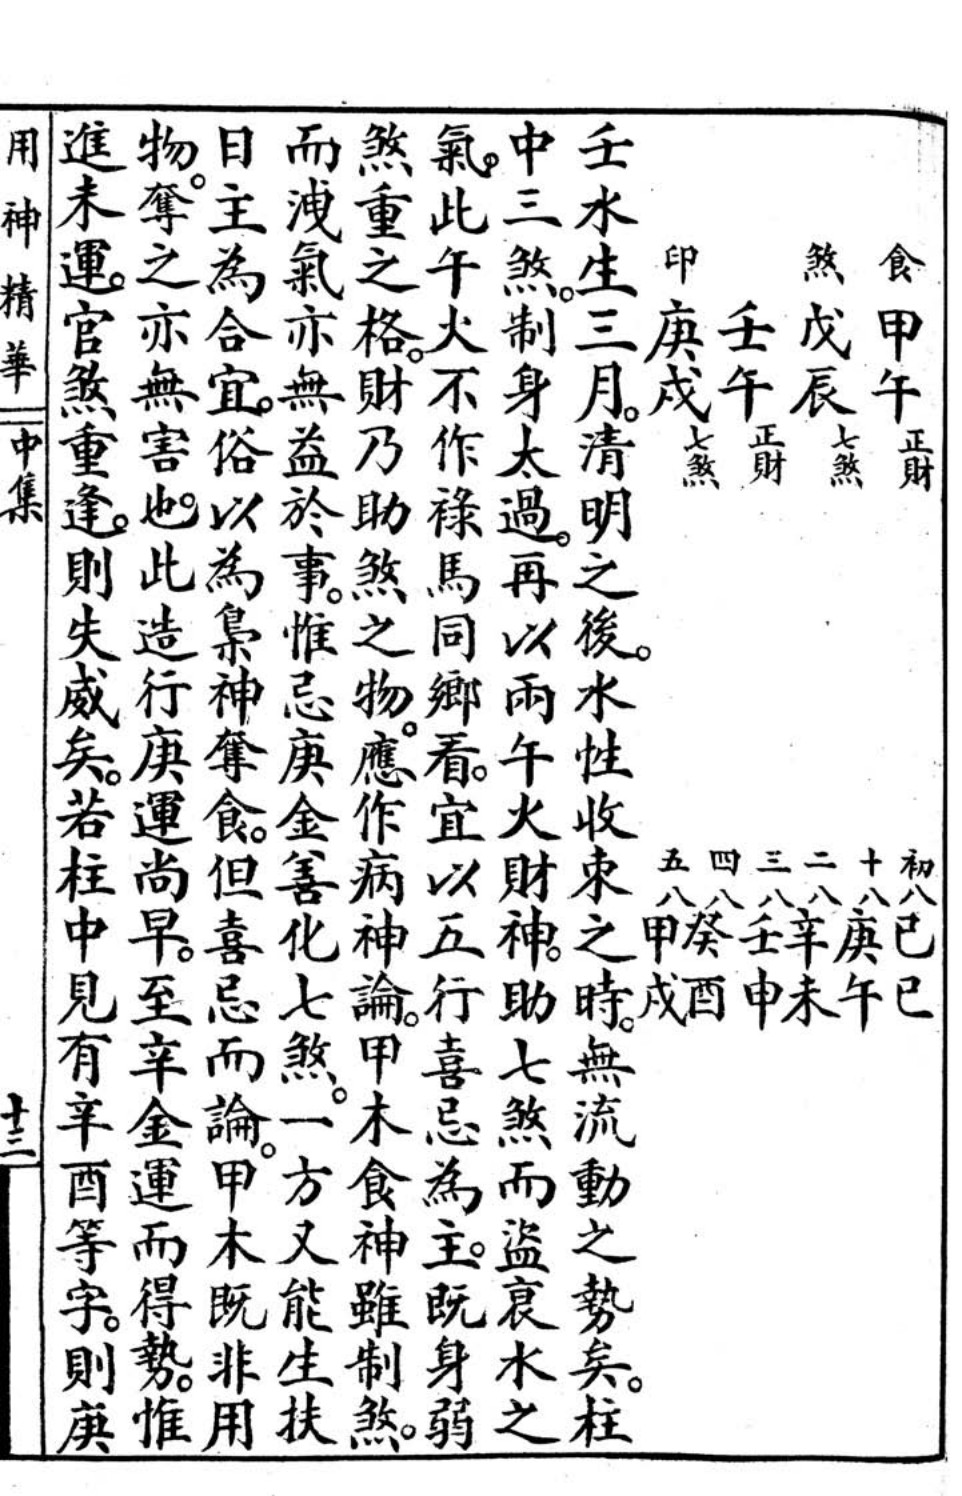 食 甲午 正財
煞 戊辰 七煞
壬午 正財
印 庚戌 七煞
初八 己巳
十八 庚午
二八 辛未
三八 壬申
四八 癸酉
五八 甲戌
壬水生三月。清明之後。水性收束之時。無流動之勢矣。柱
中三煞。制身太過。再以兩午火財神。助七煞而盜衰水之
氣。此午火不作祿馬同鄉看。宜以五行喜忌為主。既身弱
煞重之格。財乃助煞之物。應作病神論。甲木食神雖制煞。
而洩氣亦無益於事。惟忌庚金善化七煞。一方又能生扶
日主為合宜。俗以為梟神奪食。但喜忌而論。甲木既非用
物。奪之亦無害也。此造行庚運尚早。至辛金運而得勢。惟
進未運。官煞重逢。則失威矣。若柱中見有辛酉等字。則庚
用神精華 中集 十三